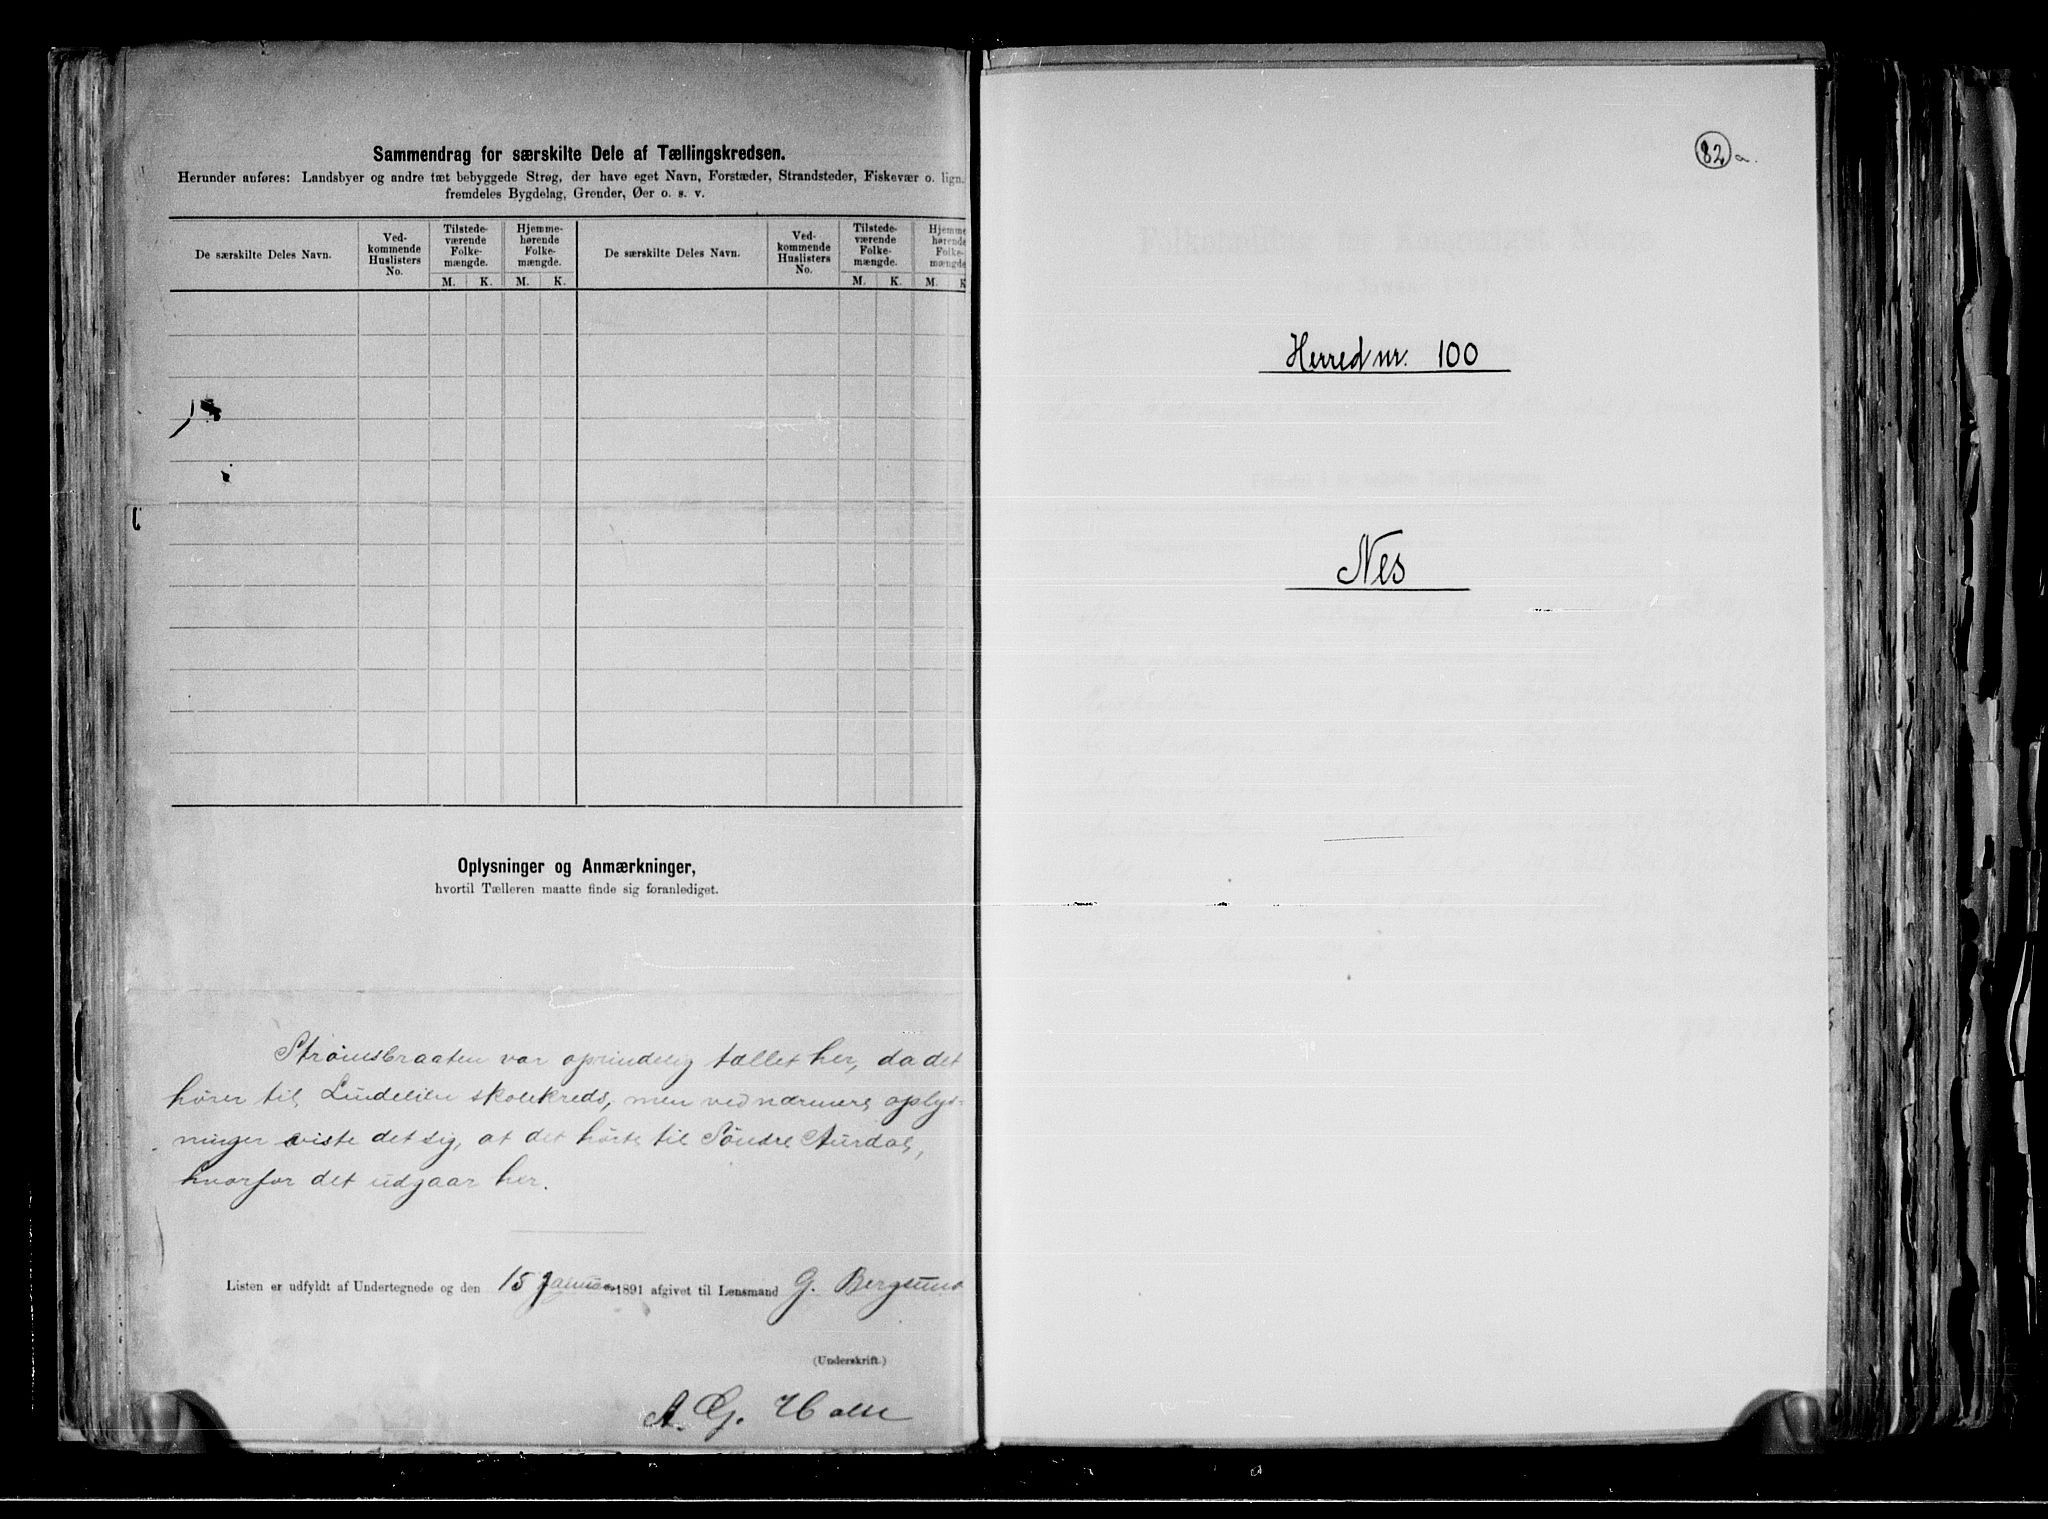 Sammendrag for særskilte Dele af Tællingskredsen.
Herunder anføres: Landsbyer og andre tæt bebyggede Strøg, der have eget Navn, Forstæder, Strandsteder, Fiskevær o. lign.
fremdeles Bygdelag, Grender, Øer o. s. v.
De særskilte Deles Navn.
Ved-
kommende
Huslisters
No.
Tilstede-
værende
Folke-
mængde.
M. K.
Hjemme-
hørende
Folke-
mængde.
M. K.
De særskilte Deles Navn.
Ved-
kommende
Huslisters
No.
Tilstede-
værende
Folke-
mængde.
M. K.
Hjemme
hørende
Folke-
mængde
M. K
Oplysninger og Anmærkninger,
hvortil Tælleren maatte finde sig foranlediget.
Strømsbraaten var oprindelig tællet her, da det
hører til Lindelien skolekreds, men ved nærmere oplys-
ninger viste det sig, at det hørte til Søndre Aurdal,
hvorfor det udgaar her.
Listen er udfyldt af Undertegnede og den 15 Januar 1891 afgivet til Lensmand G. Bergsund
(Underskrift.)
A. G. Halle
82 a.
Herred nr. 100
Nes